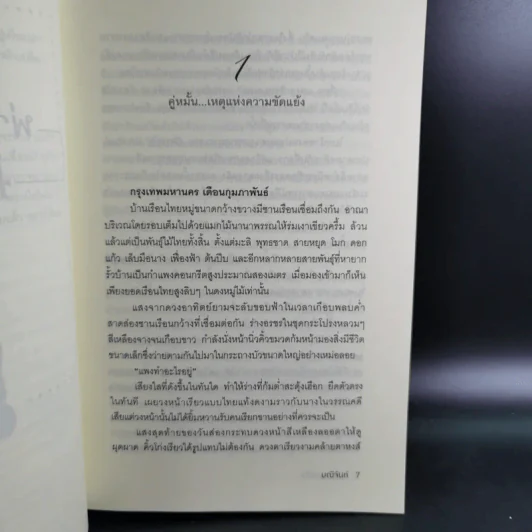 1
คู่หมั้น...เหตุแห่งความขัดแย้ง
กรุงเทพมหานคร เดือนกุมภาพันธ์
บ้านเรือนไทยหมู่ขนาดกว้างขวางมีชานเรือนเชื่อมถึงกัน อาณา
บริเวณโดยรอบเต็มไปด้วยแมกไม้นานาพรรณให้ร่มเงาเขียวครึ้ม ล้วน
แล้วแต่เป็นพันธุ์ไม้ไทยทั้งสิ้น ตั้งแต่มะลิ พุทธชาด สายหยุด โมก ดอก
แก้ว เล็บมือนาง เฟื่องฟ้า ต้นปีบ และอีกหลากหลายสายพันธุ์ที่หายาก
รั้วบ้านเป็นกำแพงคอนกรีตสูงประมาณสองเมตร เมื่อมองเข้ามาก็เห็น
เพียงยอดเรือนไทยสูงลิบๆ ในดงหมู่ไม้เท่านั้น
แสงจากดวงอาทิตย์ยามจะลับขอบฟ้าในเวลาเกือบพลบค่ำ
สาดส่องชานเรือนกว้างที่เชื่อมต่อกัน ร่างอรชรในชุดกระโปรงหลวมๆ
สีเหลืองจางจนเกือบขาว กำลังนั่งหน้านิ่วคิ้วขมวดก้มหน้ามองสิ่งมีชีวิต
ขนาดเล็กซึ่งว่ายตามกันไปมาในกระถางบัวขนาดใหญ่อย่างเหม่อลอย
“แพงทำอะไรอยู่”
เสียงใสที่ดังขึ้นในทันใด ทำให้ร่างที่ก้มต่ำสะดุ้งเฮือก ยืดตัวตรง
ในทันที เผยวงหน้าเรียวแบบไทยแท้งดงามราวกับนางในวรรณคดี
เสียแต่วงหน้านั้นไม่ได้ยิ้มหวานรับคนเรียกขานอย่างที่ควรจะเป็น
แสงสุดท้ายของวันส่องกระทบดวงหน้าสีเหลืองลออตาให้ดู
ผุดผาด คิ้วโก่งเรียวได้รูปแทบไม่ต้องกัน ดวงตาเรียวงามคล้ายตาหงส์
มณีจันท์ 7